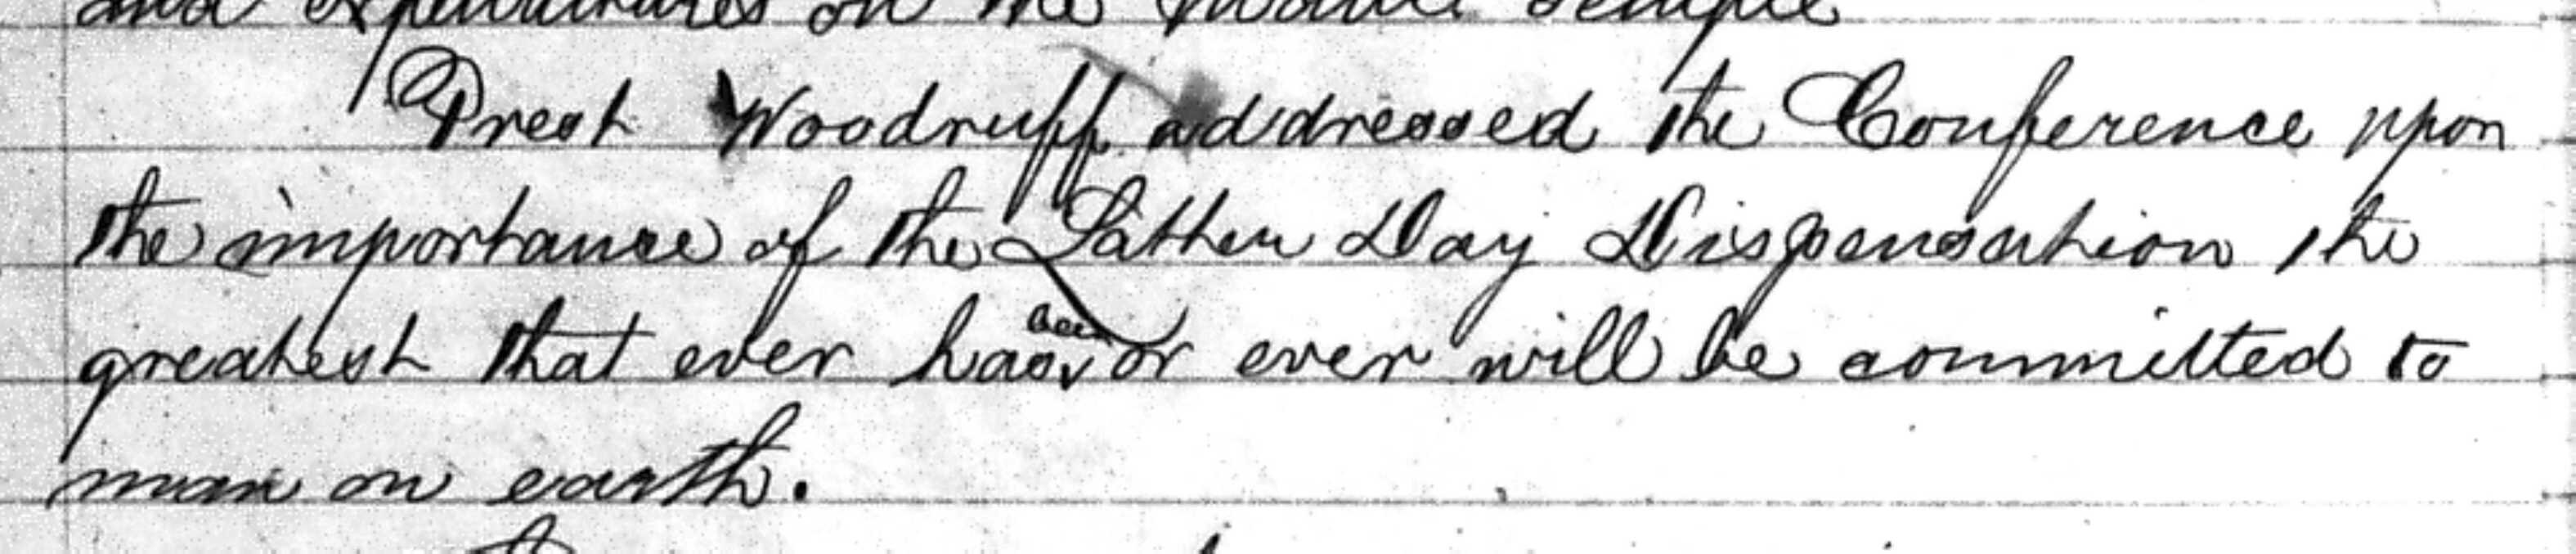 and expenditures on the Manti Temple
Prest Woodruff addressed the Conference upon
the importance of the Latter Day Dispensation the
greatest that ever has been or ever will be committed to
man on earth.